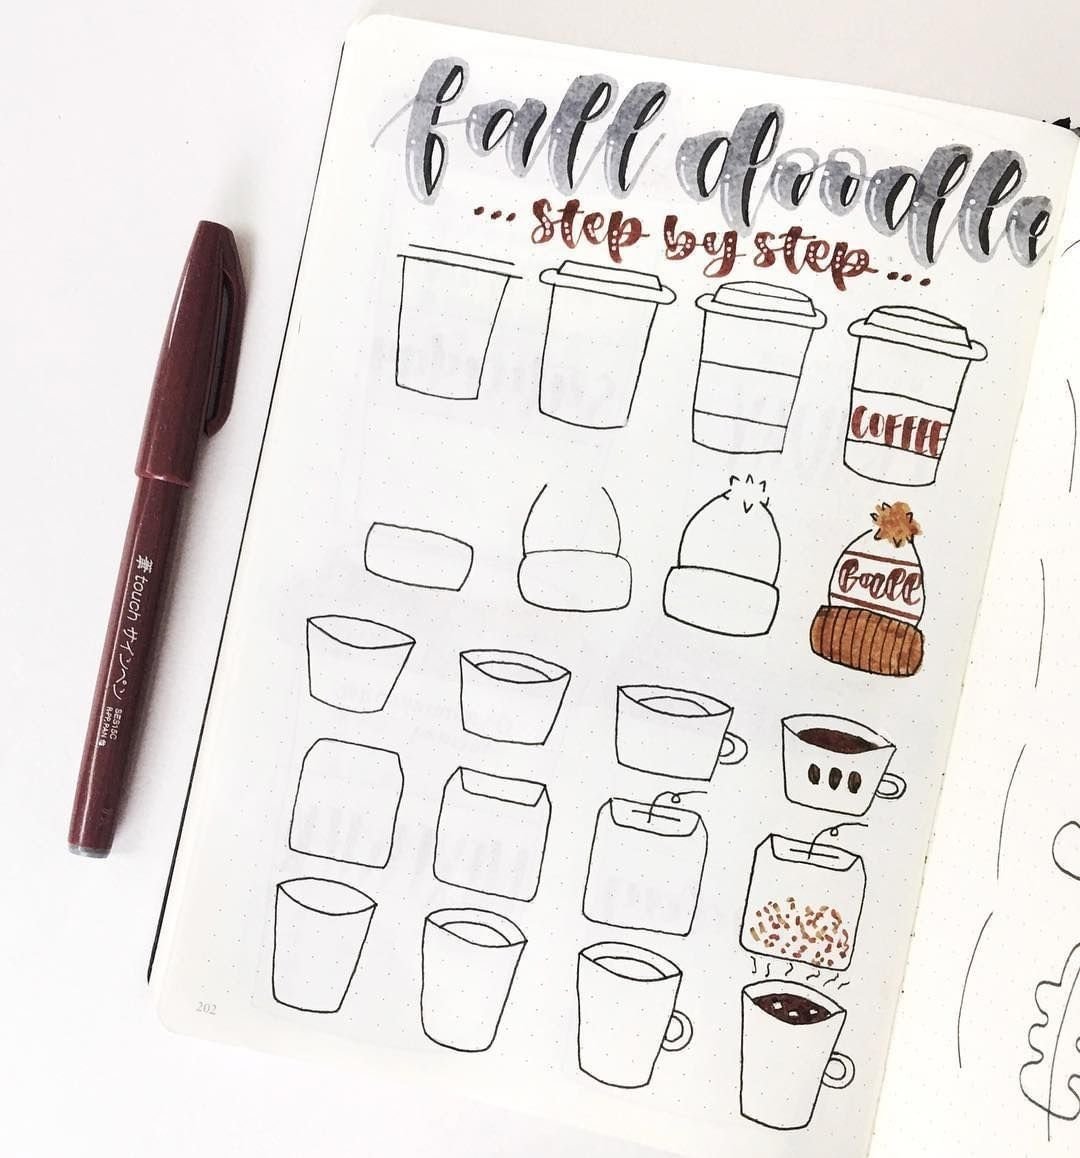 fall doodle
... step by step ...
COFFEE
Bonll
筆touch サインペン SES15C
202